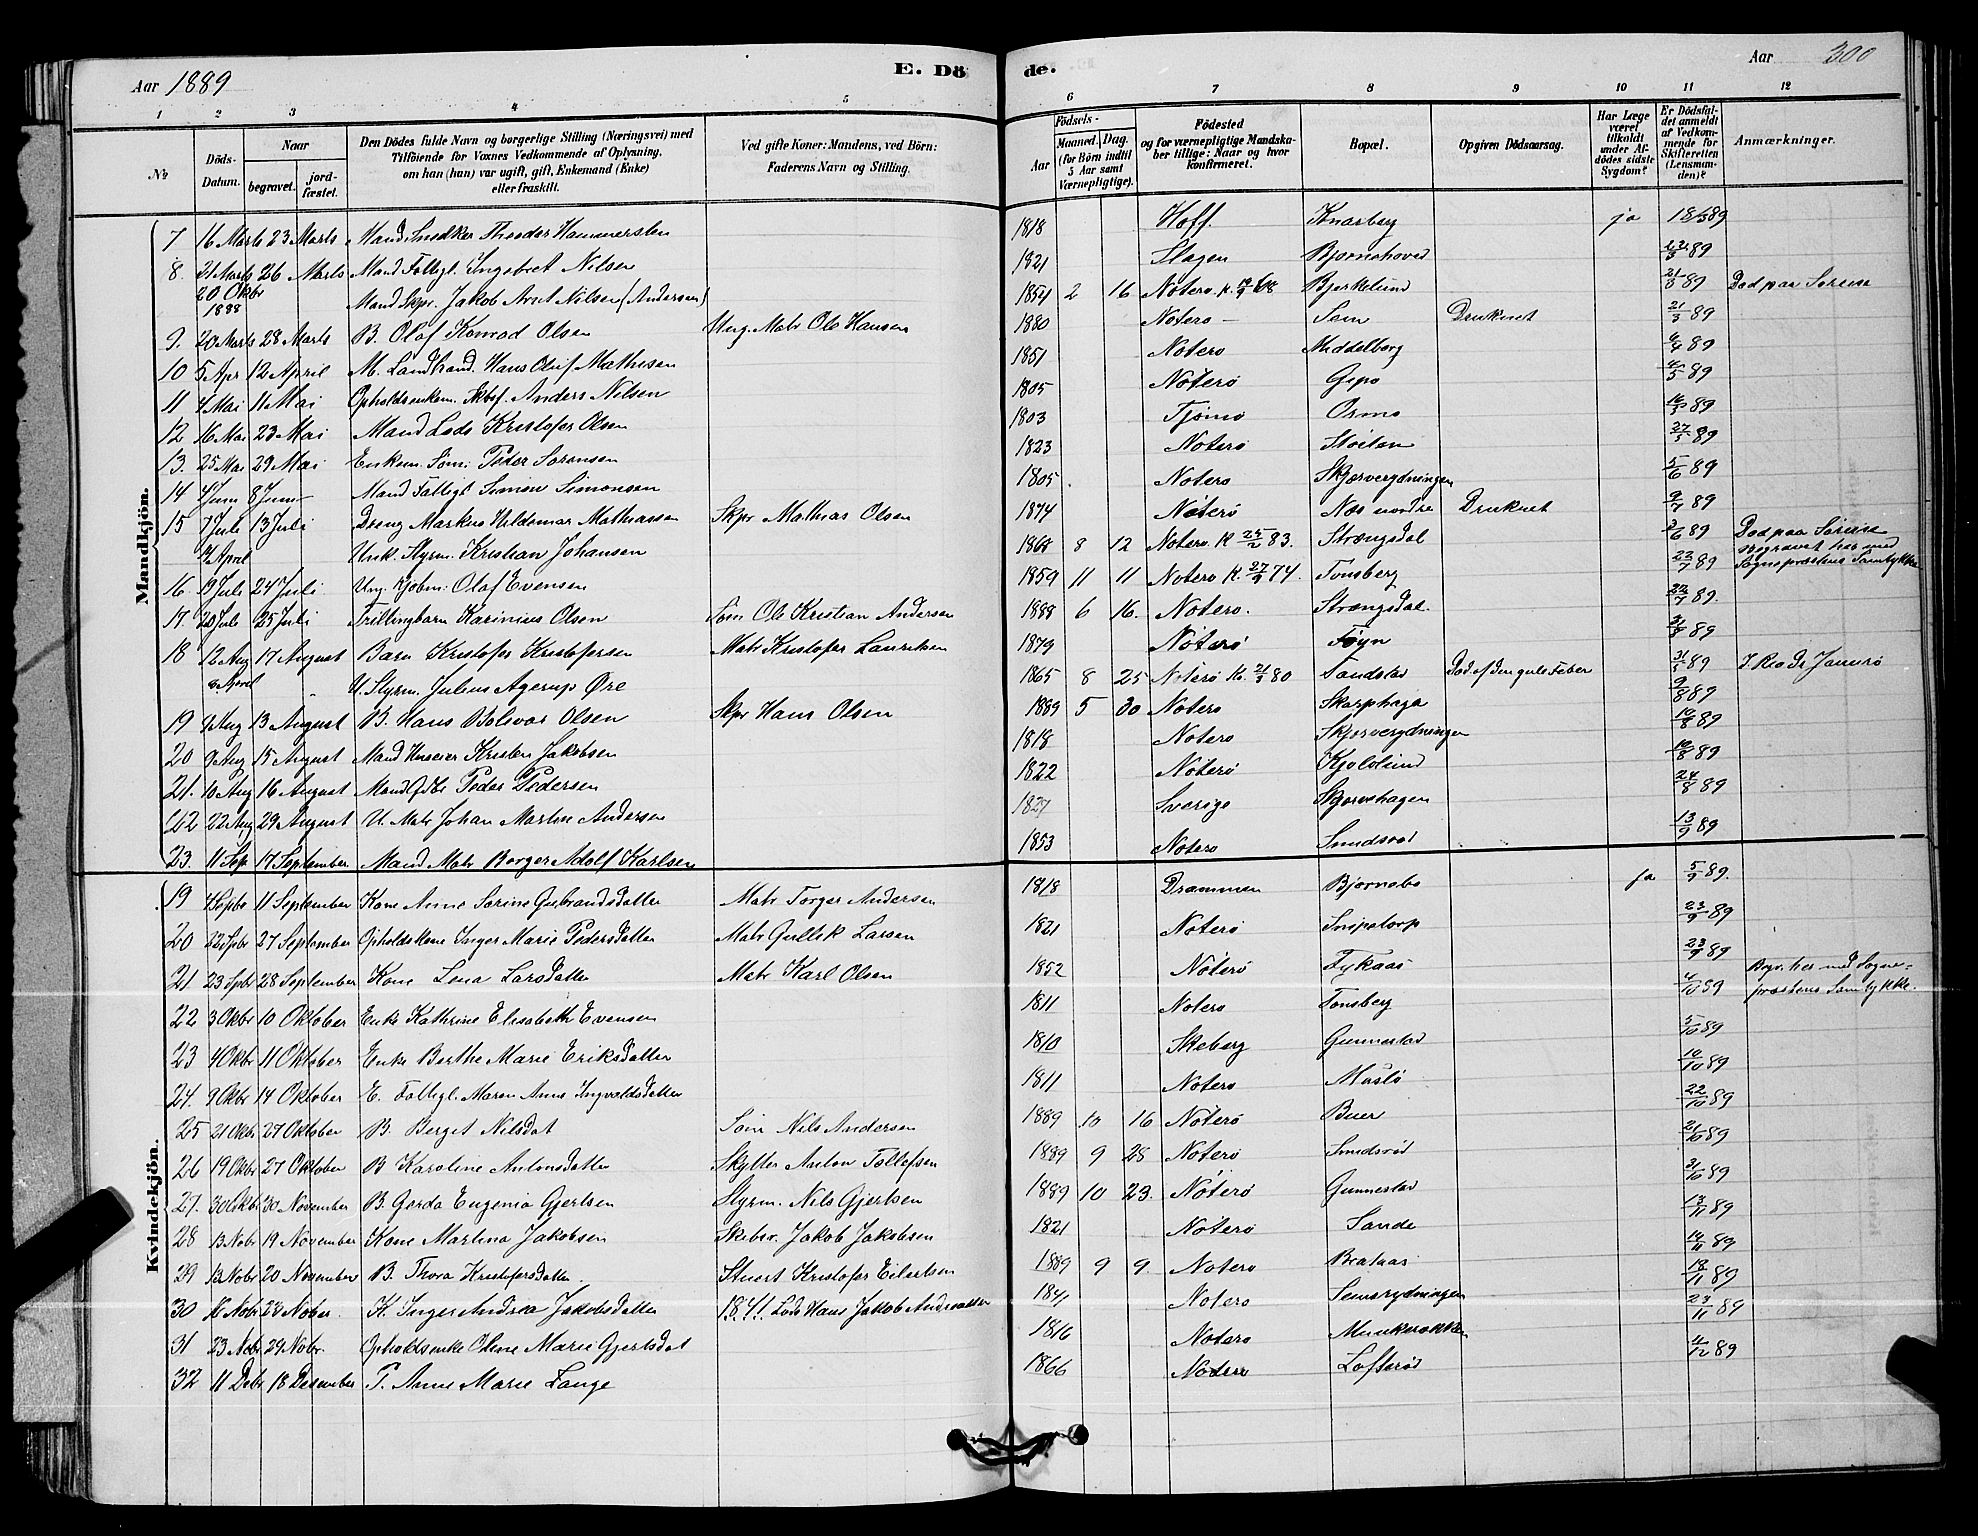 Aar 1889
E. Dö
de.
Aar 300
1 2 3 4 5
6 7 8 9 10 11 12
№
Döds-
Datum.
Naar
begravet.
jord-
fæstet.
Den Dödes fulde Navn og borgerlige Stilling (Næringsvei) med
Tilföiende for Voxnes Vedkommende af Oplysning,
om han (hun) var ugift, gift, Enkemand (Enke)
eller fraskilt.
Ved gifte Koner: Mandens, ved Börn:
Faderens Navn og Stilling.
Födsels-
Aar
Maaned.
Dag.
(for Börn indtil
5 Aar samt
Værnepligtige).
Födested
og for værnepligtige Mandska-
ber tillige: Naar og hvor
konfirmeret.
Bopæl.
Opgiven Dödsaarsag.
Har Læge
været
tilkaldt
under Af-
dödes sidste
Sygdom?
Er Dödsfal-
det anmeldt
af Vedkom-
mende for
Skifteretten
(Lensman-
den)?
Anmærkninger.
Mandkjön.
7 16 Marts 23 Marts Mand Snedker Theodor Hammersten 1818 Hoff. Knarberg ja 18/3 89
8. 21 Marts 26 Marts Mand Fattigl. Ingebret Nilsen 1821 Slagen Bjornehoved 89
20 Okbr 1888 Mand Skpr. Jakob Arnt Nilsen (Andersen) 1854 2 16 Notero Bjerkelund 21/3 89 Dod paa Soreise
9. 20 Marts 28 Marts B. Olaf Konrad Olsen Ung. Matr Ole Hansen 1880 Notero Sem Druknet 21/3 89
10 5 Apr 12 April M. Landhand. Hans Oluf Mathisen 1851 Notero Middelborg 6/4 89
11 4 Mai 11 Mai Opholdsenkem. Skbsf. Anders Nilsen 1805 Noterö Gipo 6/5 89
12 16 Mai 23 Mai Mand Lods Kristofer Olsen 1803 Tjomo Ormo 89
13. 25 Mai 29 Mai Enkem. Söm. Peder Sorensen 1823 Noterö Stoiten 27/5 89
14 4 Juni 8 Juni Mand Fattigl Simon Simonsen 1805 Notero Skjerverydningen 5/6 89
15 7 Juli 13 Juli Dreng Markus Hildemar Mathiassen Skpr Mathias Olsen 1874 Nöterö Nes nordre Druknet 9/7 89
April Unk. Styrm. Kristian Johansen 1868 8 12 Notero K 25/2 83. Strengsdal 89 Dod paa Soreise
16 19 Juli 24 Juli Ung. Kjobm. Olaf Evensen 1859 11 11 Notero K. 27/9 74. Tonsberg 23/7 89 Begravet her med Sognepræstens Samtykke
17. 20 Juli 25 Juli Trillingbarn Karinius Olsen Söm Ole Kristian Andersen 1888 6 16. Notero. Strengsdal. 22/7 89.
18 12 Aug 17 August Barn Kristofer Kristofersen Matr Kristofer Lauritsen 1879 Nöterö Föyn 89
April U. Styrm. Julius Agerup Öre 1865 8 25 Noterö K. 80 Sandstad Dod af den gule Feber 31/5 89 I Rio De Janeirö
19 4 Aug 13 August B. Hans Bolevar Olsen Skpr Hans Olsen 1889 5 30 Notero Skarphaga 9/8 89
20 9 Aug 15 August Mand Huseier Kristen Jakobsen 1818 Notero Skjerverydningen 10/8 89
21. 10 Aug 16 August Mand Peder Pedersen 1822 Noterö Kjolelund 89
22 22 Aug 29 August U. Matr Johan Martin Andersen 1827 Sverige Skjerrehagen 24/8 89
23. 11 Sep 17 September Mand Matr Borger Adolf Karlsen 1853 Notero Smidsrod 13/9 89
Kvindekjön.
19 4 Sepbr 11 September Kone Anne Sorine Gulbrandsdatter Matr Torger Andersen 1818 Drammen Bjornebo ja 5/9 89.
20 22 Spbr 27 September Opholdskone Inger Marie Pedersdatter Matr Gullik Larsen 1821 Noterö Snipetorp 23/9 89
21 23 Spbr 28 September Kone Lena Larsdatter Matr Karl Olsen 1852 Nöterö Fykaas 23/9 89
22 3 Okbr 10 Oktober Enke Kathrine Elisabeth Evensen 1811 Notero Tonsberg 4/10 89 Begr. her med Sogne-
præstens Samtykke.
23 4 Okbr 11 Oktober Enke Berthe Marie Eriksdatter 1810 Skeberg Gunnestad 5/10 89
24. 9 Okbr 14 Oktober E. Fattigl. Maren Anne Ingvaldsdatter 1811 Notero Muslö 10/10 89
25 21 Okbr 27 Oktober B. Berget Nilsdat Söm Nils Andersen 1889 10 16 Noterö Buer 22/10 89
26 19 Okbr 27 Oktober B Karoline Antonsdatter Skytter Anton Tollefsen 1889 9 28 Notero Smidsröd 21/10 89
27. 30 Okbr 30 November B. Gerda Eugenia Gjertsen Styrm. Nils Gjertsen 1889 10 23. Nöterö Gunnestad 31/10 89
28 13 Nobr 19 November Kone Martina Jakobsen Skebsr. Jakob Jakobsen 1821 Nöterö Sande 13/11 89
29 13 Nobr 20 November B. Thora Kristofersdatter Stuert Kristofer Eilertsen 1889 9 9. Notero Brataas 14/11 89
30 16 Nobr 23 Nober. K. Inger Andrea Jakobsdatter 1841. Lods Hans Jakob Andreassen 1841 Notero Semsrydningen 18/11 89
31 23 Nobr 29 Nobr. Opholdsenke Oline Marie Gjertsdat 1816 Notero Munkerekken 23/11 89
32 11 Debr 18 Desember P. Anne Marie Lange 1866 Notero Lofterod 89